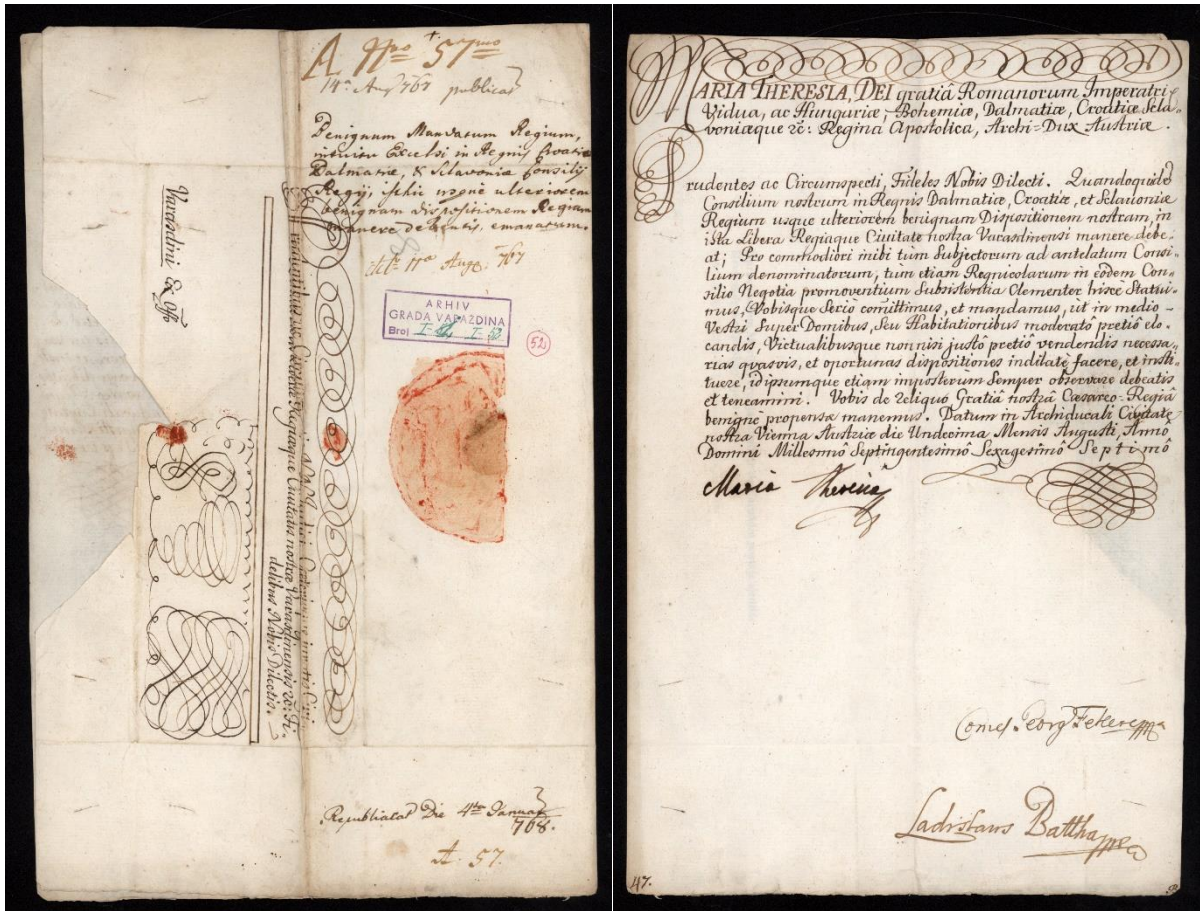 A Nro 57mo
14a Aug 767 publicat
Benignum Mandatum Regium,
intuitu Excelsi in Regnis Croatiæ
Dalmatiæ, & Sclavoniæ Consilij
Regij, isthic usque ulteriorem
benignam dispositionem Regiam
manere debentis, emanatum.
Aug. 767
ARHIV
GRADA VARAŽDINA
Broj
52
Varasdini Ex offo
Regiæque Civitatis nostræ Varasdinensis &c: Fi-
delibus Nobis Dilectis.
Republicat Die 4ta Januar
768.
A. 57.
MARIA THERESIA, DEI gratiâ Romanorum Imperatrix
Vidua, ac Hungariæ, Bohemiæ, Dalmatiæ, Croatiæ Scla-
voniæque &c: Regina Apostolica, Archi-Dux Austriæ.
Prudentes ac Circumspecti, Fideles Nobis Dilecti. Quandoquidè
Consilium nostrum in Regnis Dalmatiæ, Croatiæ, et Sclavoniæ
Regium usque ulteriorem benignam Dispositionem nostram, in
ista Libera Regiaque Civitate nostra Varasdinensi manere debe-
at; Pro commodiori inibi tum Subjectorum ad antelatum Consi-
lium denominatorum, tum etiam Regnicolarum in eôdem Con-
silio Negotia promoventium Subsistentia Clementer hisce Statui-
mus, Vobisque Seriò committimus, et mandamus, ut in medio
Vestri Super Domibus, Seu Habitationibus moderatô pretiô elo-
candis, Victualibusque non nisi justô pretiô vendendis necessa-
rias quasvis, et oportunas dispositiones indilatè facere, et insti-
tuere, idipsumque etiam imposterum Semper observare debeatis
et teneamini. Vobis de reliquo Gratiâ nostrâ Cæsareo-Regiâ
benignè propensæ manemus. Datum in Archiducali Civitate
nostra Vienna Austriæ die Undecima Mensis Augusti, Annô
Domini Millesimô Septingentesimô Sexagesimô Septimô
Maria Theresia
Georg Fekete
Ladislaus Battha
47.